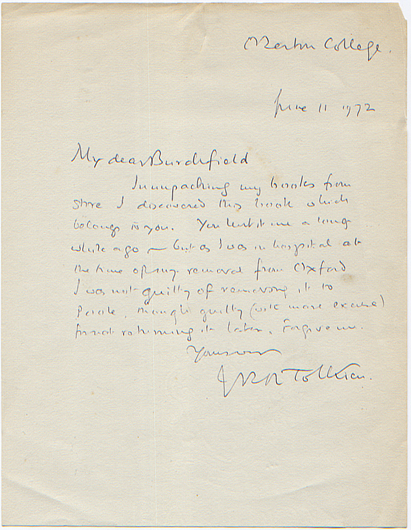 Merton College.
June 11 1972
My dear Burchfield
In unpacking my books from
store I discovered this book which
belongs to you. You lent it me a long
while ago – but as I was in hospital at
the time of my removal from Oxford
I was not guilty of removing it to
Poole, though guilty (with more excuse)
for not returning it later. Forgive me.
Yours ever
JRR Tolkien.